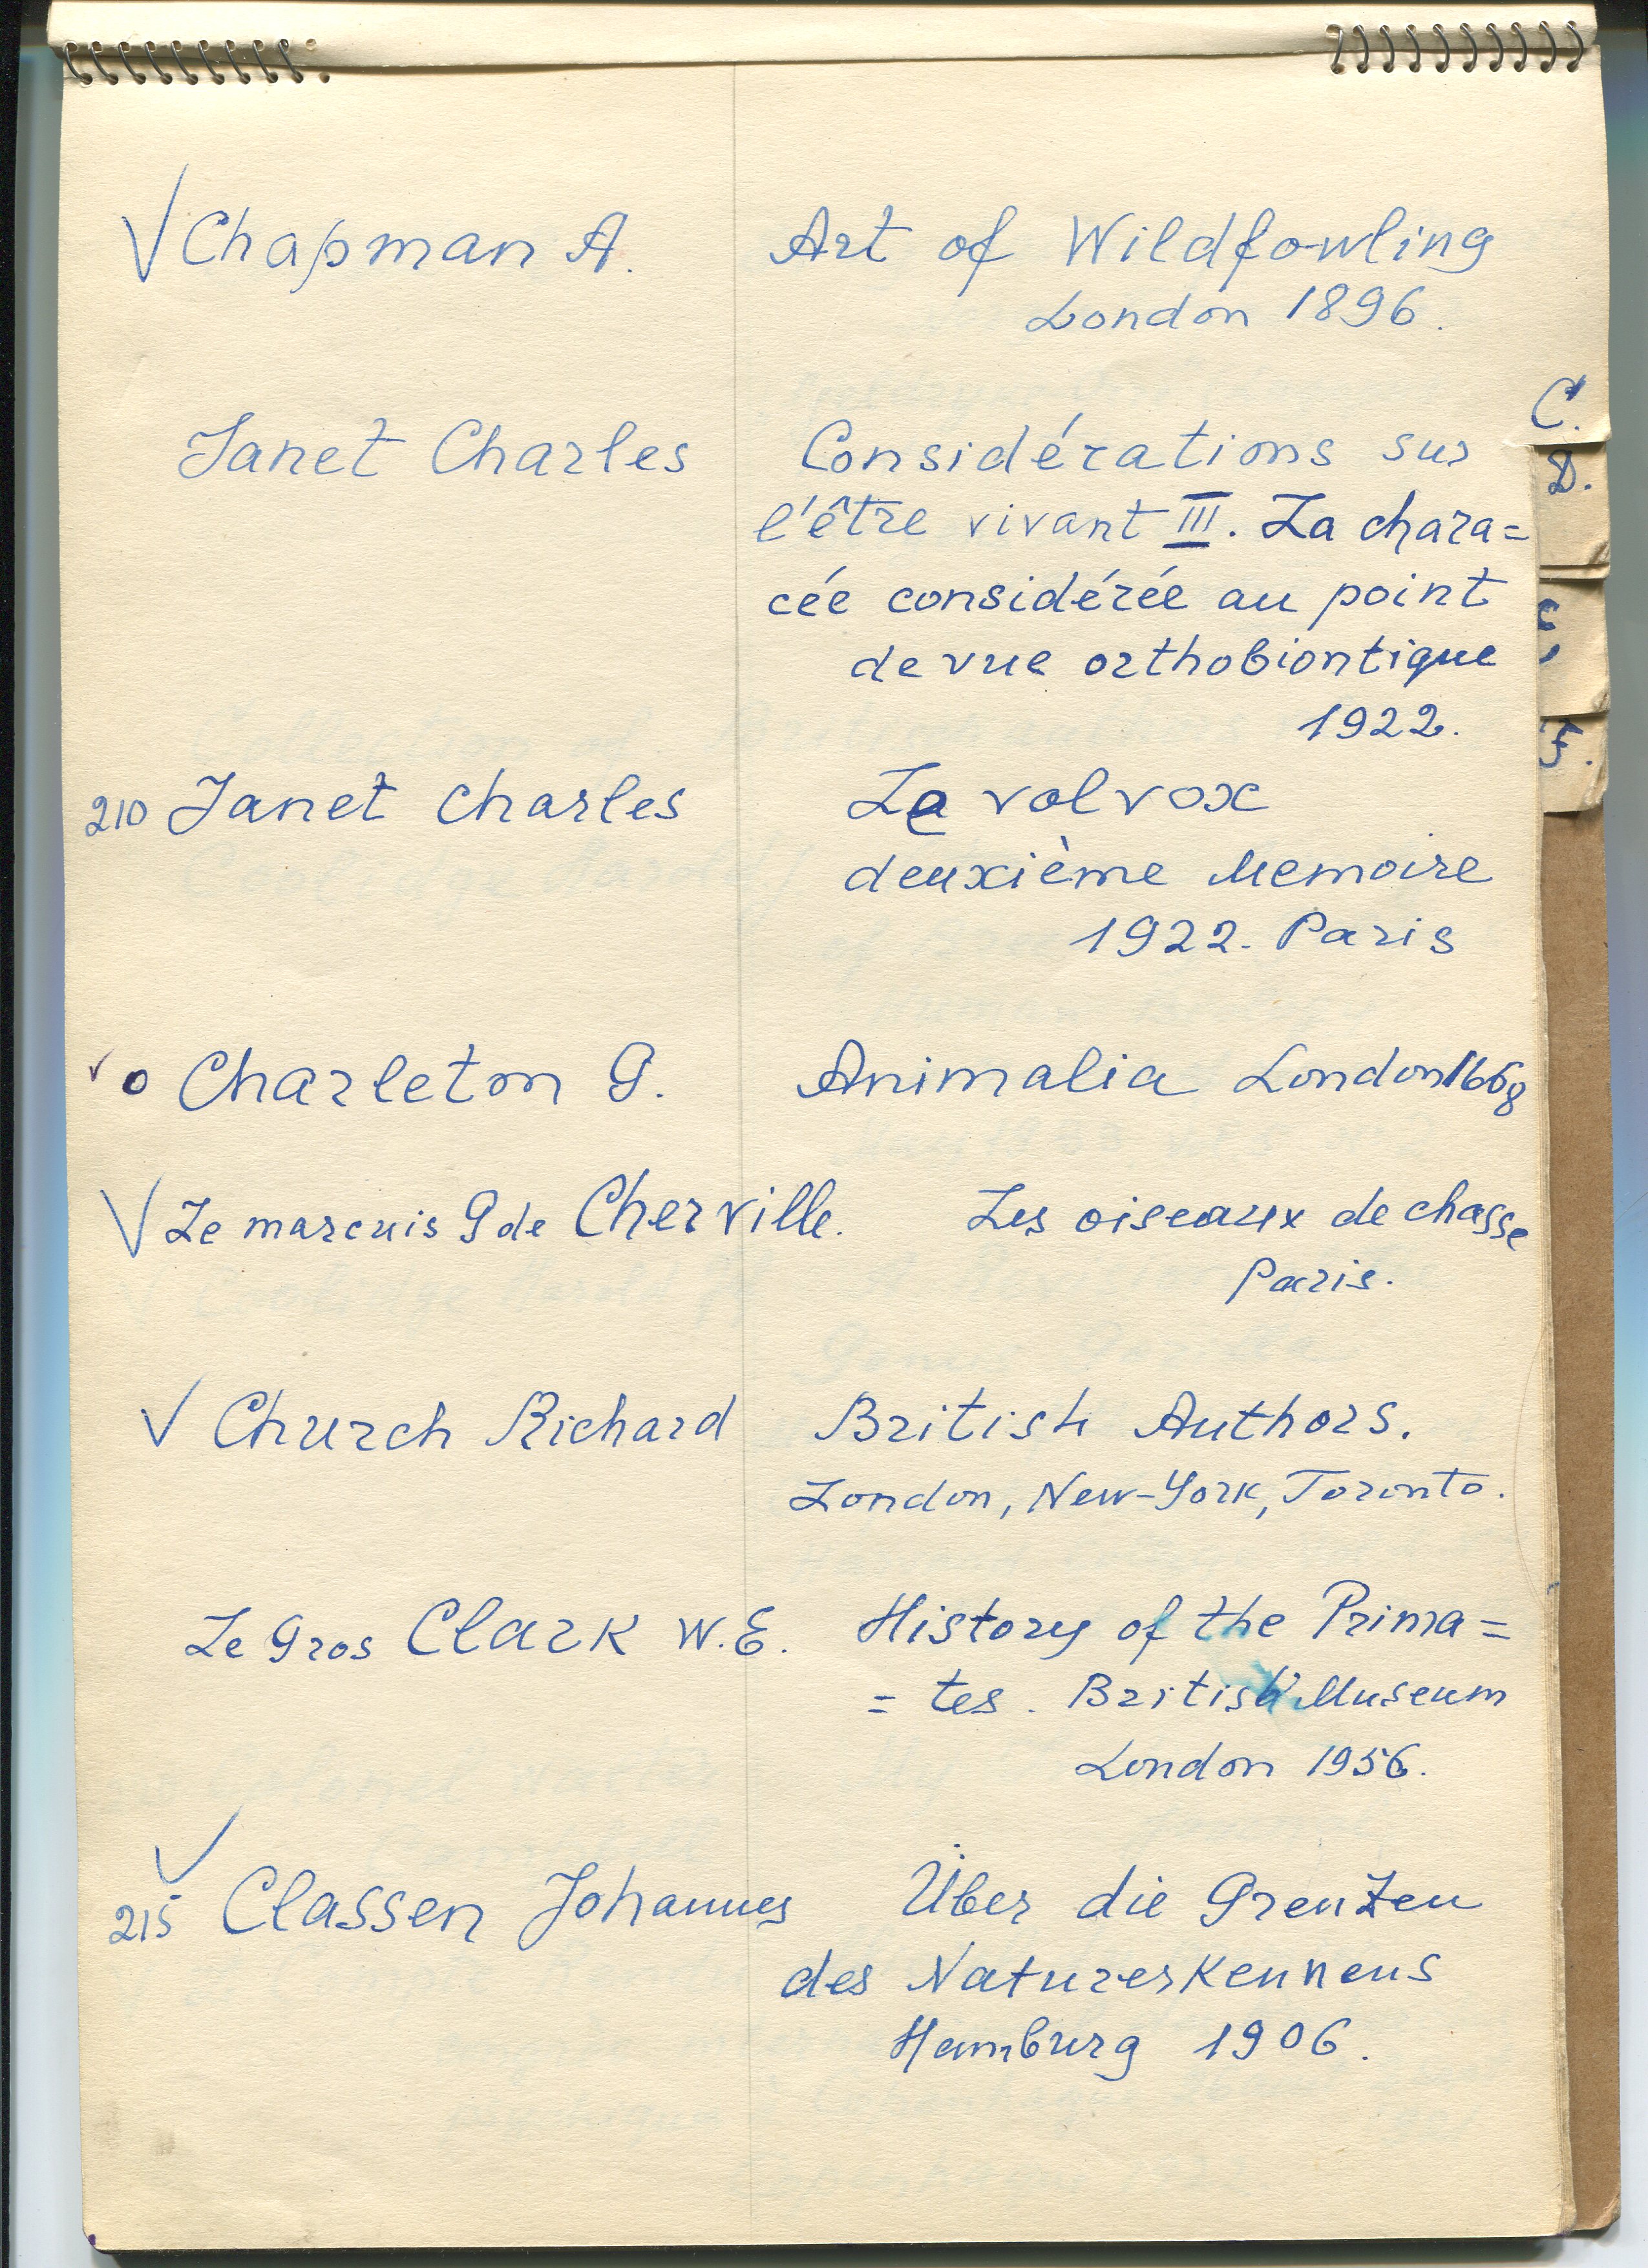 √ Chapman A. Art of Wildfowling
London 1896.
Janet Charles Considérations sur
l'être vivant III. La chara=
cée considérée au point
de vue orthobiontique
1922.
210 Janet Charles Le volvox
deuxième Memoire
1922. Paris
√ o Charleton G. Animalia London 1668
√ Le marcuis G de Cherville. Les oiseaux de chasse
Paris.
√ Church Richard British Authors.
London, New-York, Toronto.
Le Gros Clark W.E. History of the Prima=
= tes. British Museum
London 1956.
√
215 Classen Johannes Über die Grenzen
des Naturerkennens
Hamburg 1906.
C.
D.
F.